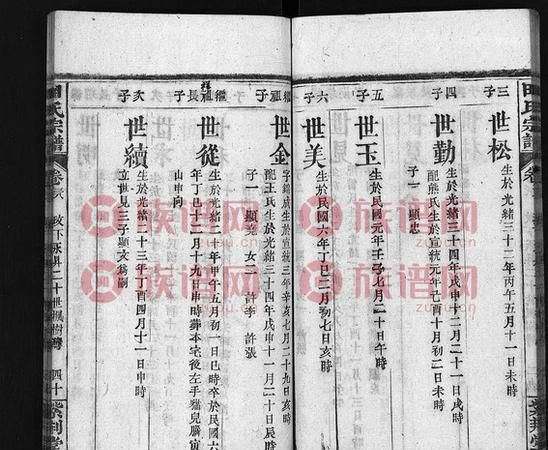 三子
世松
生於光緒三十二年丙午五月十一日未時
四子
世勤
生於光緒三十四年戊申十二月二十一日戌時
配熊氏生於宣統元年己酉十月初二日未時
子一 顯忠
五子
世玉
生於民國元年壬子七月二十日午時
六子
世美
生於民國六年丁巳二月初七日亥時
繼祖子
世金
字錦成生於宣統三年辛亥七月二十九日亥時
配王氏生於光緒三十四年戊申十一月二十日辰時
子一 顯 女二 許李 許張
繼祖長子
世從
生於光緒二十年甲午五月初一日巳時卒於民國六
年丁巳十一月十九日申時葬本宅後左手貓兒
山申向
次子
世績
生於光緒三十三年丁酉四月十一日申時
立世見三子顯文為嗣
田氏宗譜
卷
田氏宗譜
卷
二十世楓樹灣
四十
紫荊堂
紫荊堂
族谱网
族谱网
族谱网
族谱网